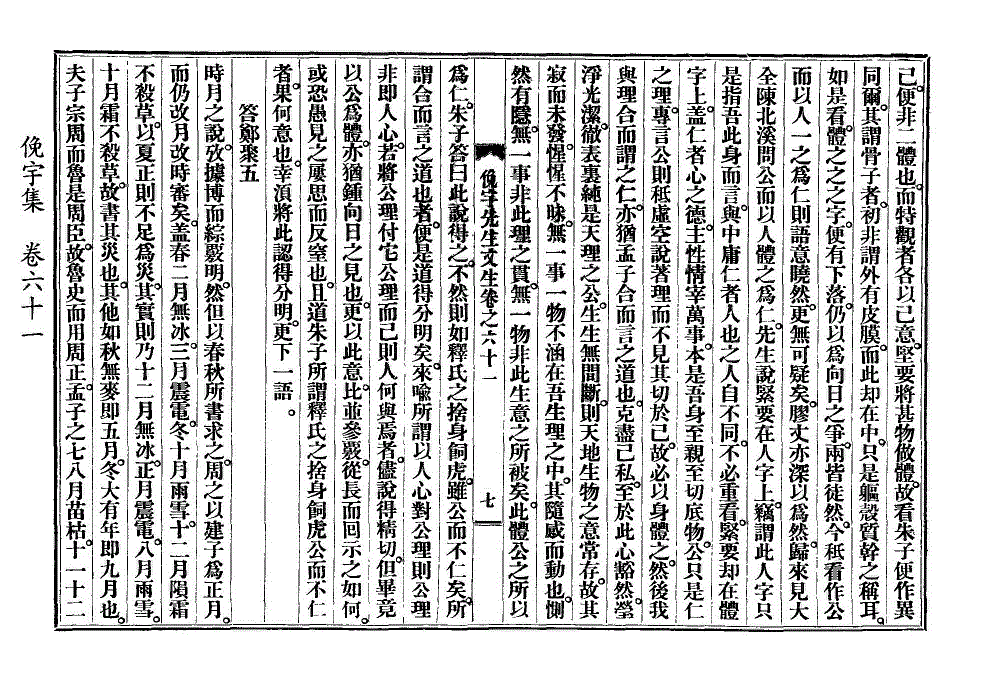 己便非二體也而特觀者各以己意堅要將甚物做體故看朱子便作異
同爾其謂骨子者初非謂外有皮膜而此却在中只是軀殼質幹之稱耳
如是看體之之之字便有下落仍以爲向日之爭兩皆徒然今秖看作公
而以人一之爲仁則語意曉然更無可疑矣膠丈亦深以爲然歸來見大
全陳北溪問公而以人體之爲仁先生說緊要在人字上竊謂此人字只
是指吾此身而言與中庸仁者人也之人自不同不必重看緊要却在體
字上蓋仁者心之德主性情宰萬事本是吾身至親至切底物公只是仁
之理專言公則秖虛空說著理而不見其切於己故必以身體之然後我
與理合而謂之仁亦猶孟子合而言之道也克盡己私至於此心豁然瑩
淨光潔徹表裏純是天理之公生生無間斷則天地生物之意常存故其
寂而未發惺惺不昧無一事一物不涵在吾生理之中其隨感而動也惻
然有隱無一事非此理之貫無一物非此生意之所被矣此體公之所以
俛宇先生文集卷之六十一
七
爲仁朱子答曰此說得之不然則如釋氏之捨身飼虎雖公而不仁矣所
謂合而言之道也者便是道得分明矣來喩所謂以人心對公理則公理
非即人心若將公理付宅公理而己則人何與焉者儘說得精切但畢竟
以公爲體亦猶鍾向日之見也更以此意比並參覈從長而回示之如何
或恐愚見之屢思而反窒也且道朱子所謂釋氏之捨身飼虎公而不仁
者果何意也幸湏將此認得分明更下一語。
答鄭聚五
時月之說攷據博而綜覈明然但以春秋所書求之周之以建子爲正月
而仍改月改時審矣蓋春二月無冰三月震電冬十月雨雪十二月隕霜
不殺草以夏正則不足爲災其實則乃十二月無冰正月震電八月雨雪
十月霜不殺草故書其災也其他如秋無麥即五月冬大有年即九月也
夫子宗周而魯是周臣故魯史而用周正孟子之七八月苗枯十一十二
俛宇集 卷六十一